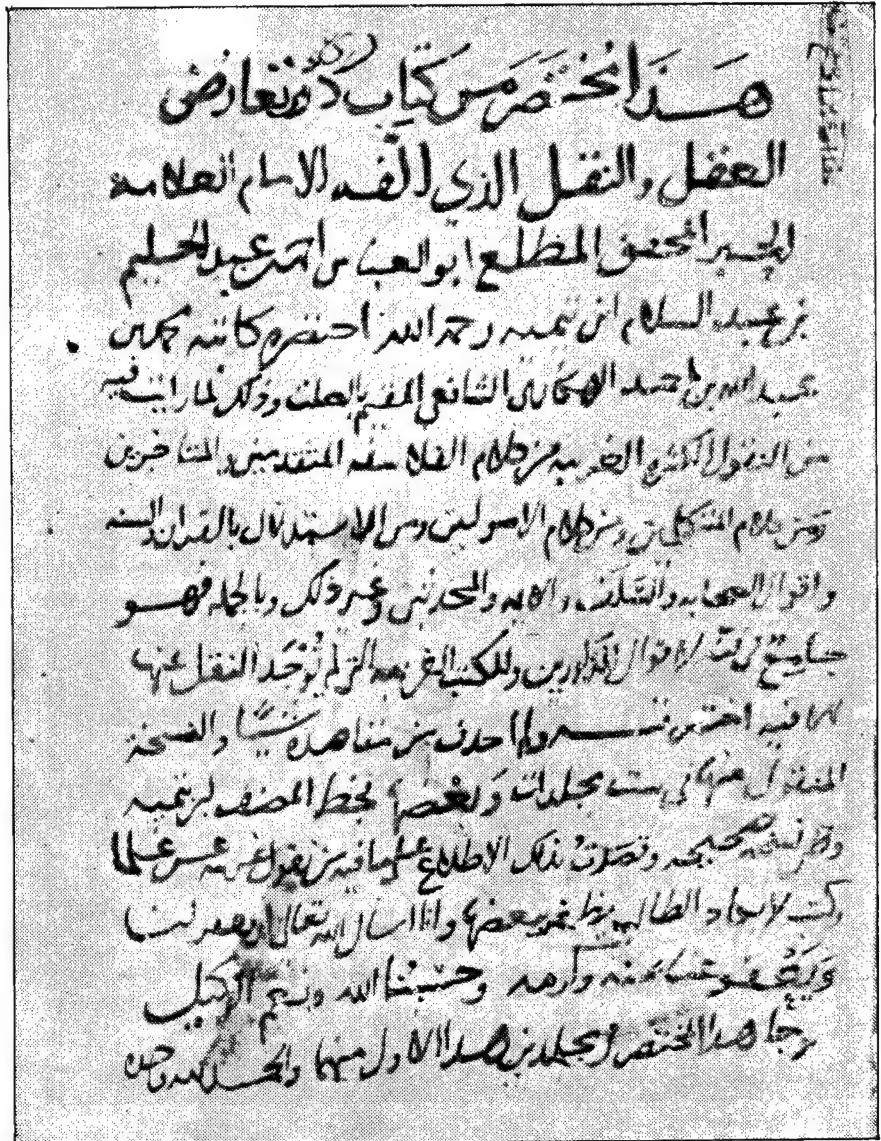 هذا مختصر من كتاب درء تعارض
العقل والنقل الذي الفه الامام العلامه
الحبر المحقق المطلع ابو العباس احمد بن عبد الحليم
بن عبد السلام ابن تيميه رحمه الله اختصره كاتبه محمد بن
عبد الله بن احمد الهكاري الشافعي المقيم بالصلت وذلك لما رايت فيه
من النقول الكثيره الغريبه من كلام الفلاسفه المتقدمين والمتاخرين
ومن كلام المتكلمين ومن كلام الاصوليين ومن الاستدلال بالقران والسنه
واقوال الصحابه والسلف والايمه والمحدثين وغير ذلك وبالجمله فهو
جامع لاقوال المذكورين وللكتب الغريبه التي لم يوجد النقل عنها
الا فيه ولم احذف من مقاصده شيئا والنسخة
المنقول منها في ست مجلدات وبعضها بخط المصنف ابن تيميه
نسخه صحيحه وقصدت بذلك الاطلاع على ما فيه من نقول غريبه
الطالب بعضها وانا اسال الله تعالى ان يغفر لنا
ويعفو عنا بمنه وكرمه وحسبنا الله ونعم الوكيل
وجا هذا المختصر في مجلدين هذا الاول منهما والحمد لله وحده